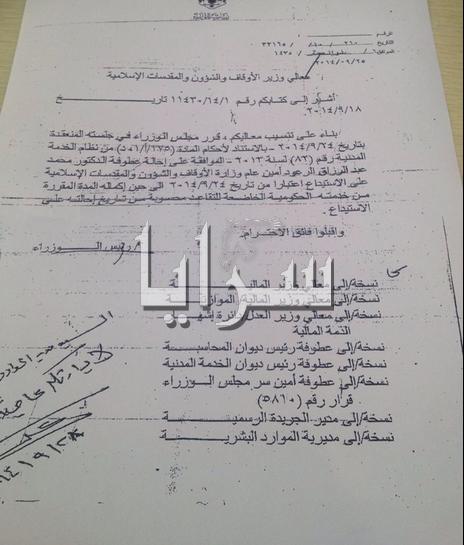 الرقم ٢١٠ / ١٠ / ٣٢١٦٥
التاريخ
الموافق ٢٠١٤/٠٩/٢٥ ١٤٣٥
معالي وزير الأوقاف والشؤون والمقدسات الإسلامية
أشير إلى كتابكم رقم ١١٤٣٠/١٤/١ تاريخ
٢٠١٤/٩/١٨
بناء على تنسيب معاليكم، قرر مجلس الوزراء في جلسته المنعقدة
بتاريخ ٢٠١٤/٩/٢٤ - بالاستناد لأحكام المادة من نظام الخدمة
المدنية رقم (٨٢) لسنة ٢٠١٣ - الموافقة على إحالة عطوفة الدكتور محمد
عبد الرزاق الرعود أمين عام وزارة الأوقاف والشؤون والمقدسات الإسلامية
على الاستيداع اعتبارا من تاريخ ٢٠١٤/٩/٢٤ الى حين إكماله المدة المقررة
من خدمته الحكومية الخاضعة للتقاعد محسوبة من تاريخ إحالته على
الاستيداع.
واقبلوا فائق الاحترام،
رئيس الوزراء
سرايا
نسخة/إلى معالي وزير المالية
نسخة/إلى معالي وزير المالية/ الموازنة
نسخة/إلى معالي وزير العدل/دائرة إشهار
الذمة المالية
نسخة/إلى عطوفة رئيس ديوان المحاسبة
نسخة/إلى عطوفة رئيس ديوان الخدمة المدنية
نسخة/إلى عطوفة أمين سر مجلس الوزراء
قرار رقم (٥٨١٠)
نسخة/إلى مدير الجريدة الرسمية
نسخة/إلى مديرية الموارد البشرية